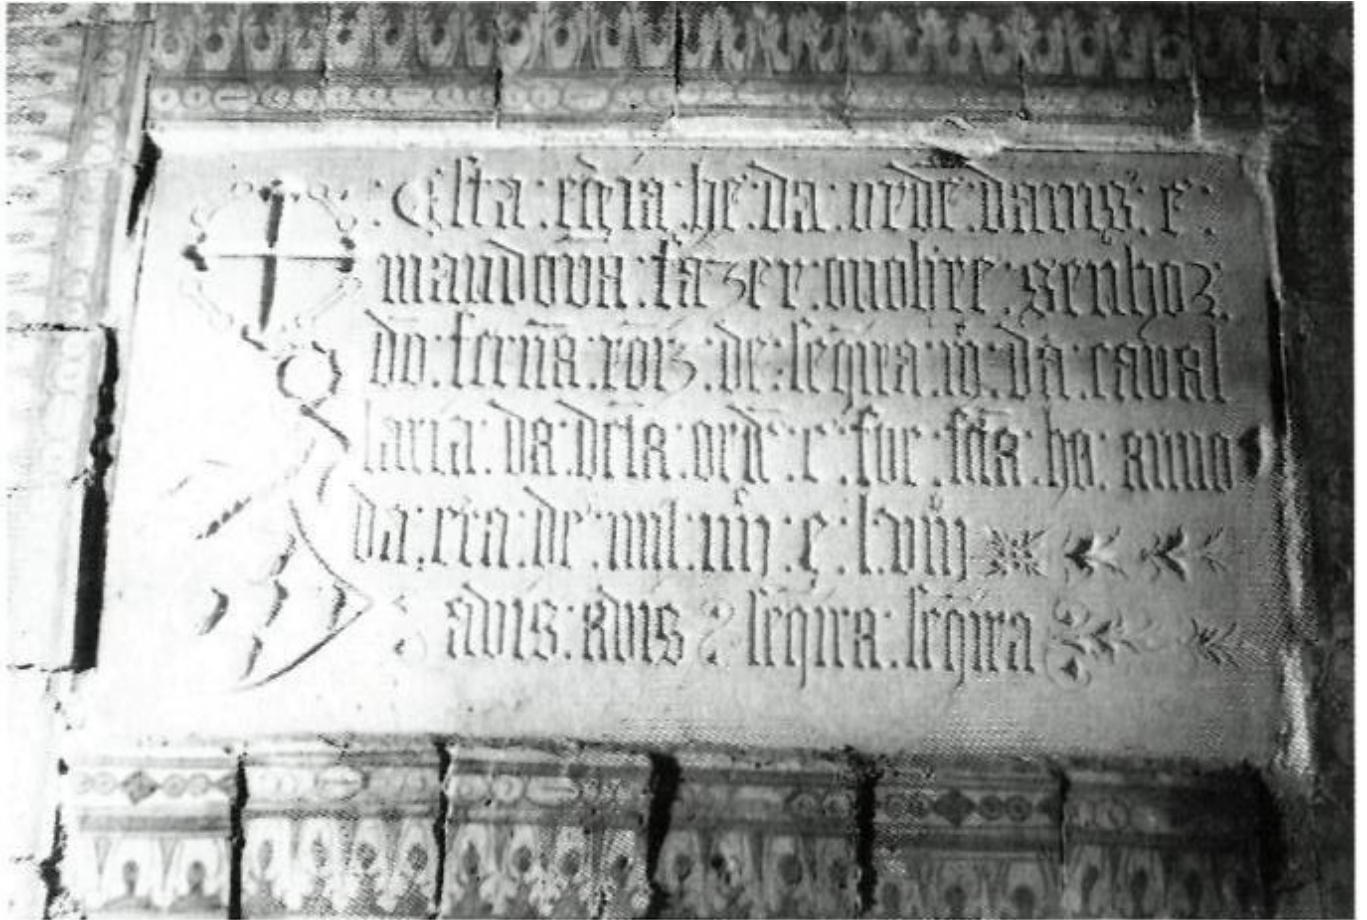 : Esta : egĩa : he : da : ordẽ : davis : e :
mandoua : fazer : onobre : senhor :
dõ : fernã : roiz : de : seq̃ira : m : da : caual
laria : da : dcta : ordẽ : e : foe : fcta : ho : anno
da : era : de : mil : iiij : e : l : viij
auis : auis seq̃ira : seq̃ira